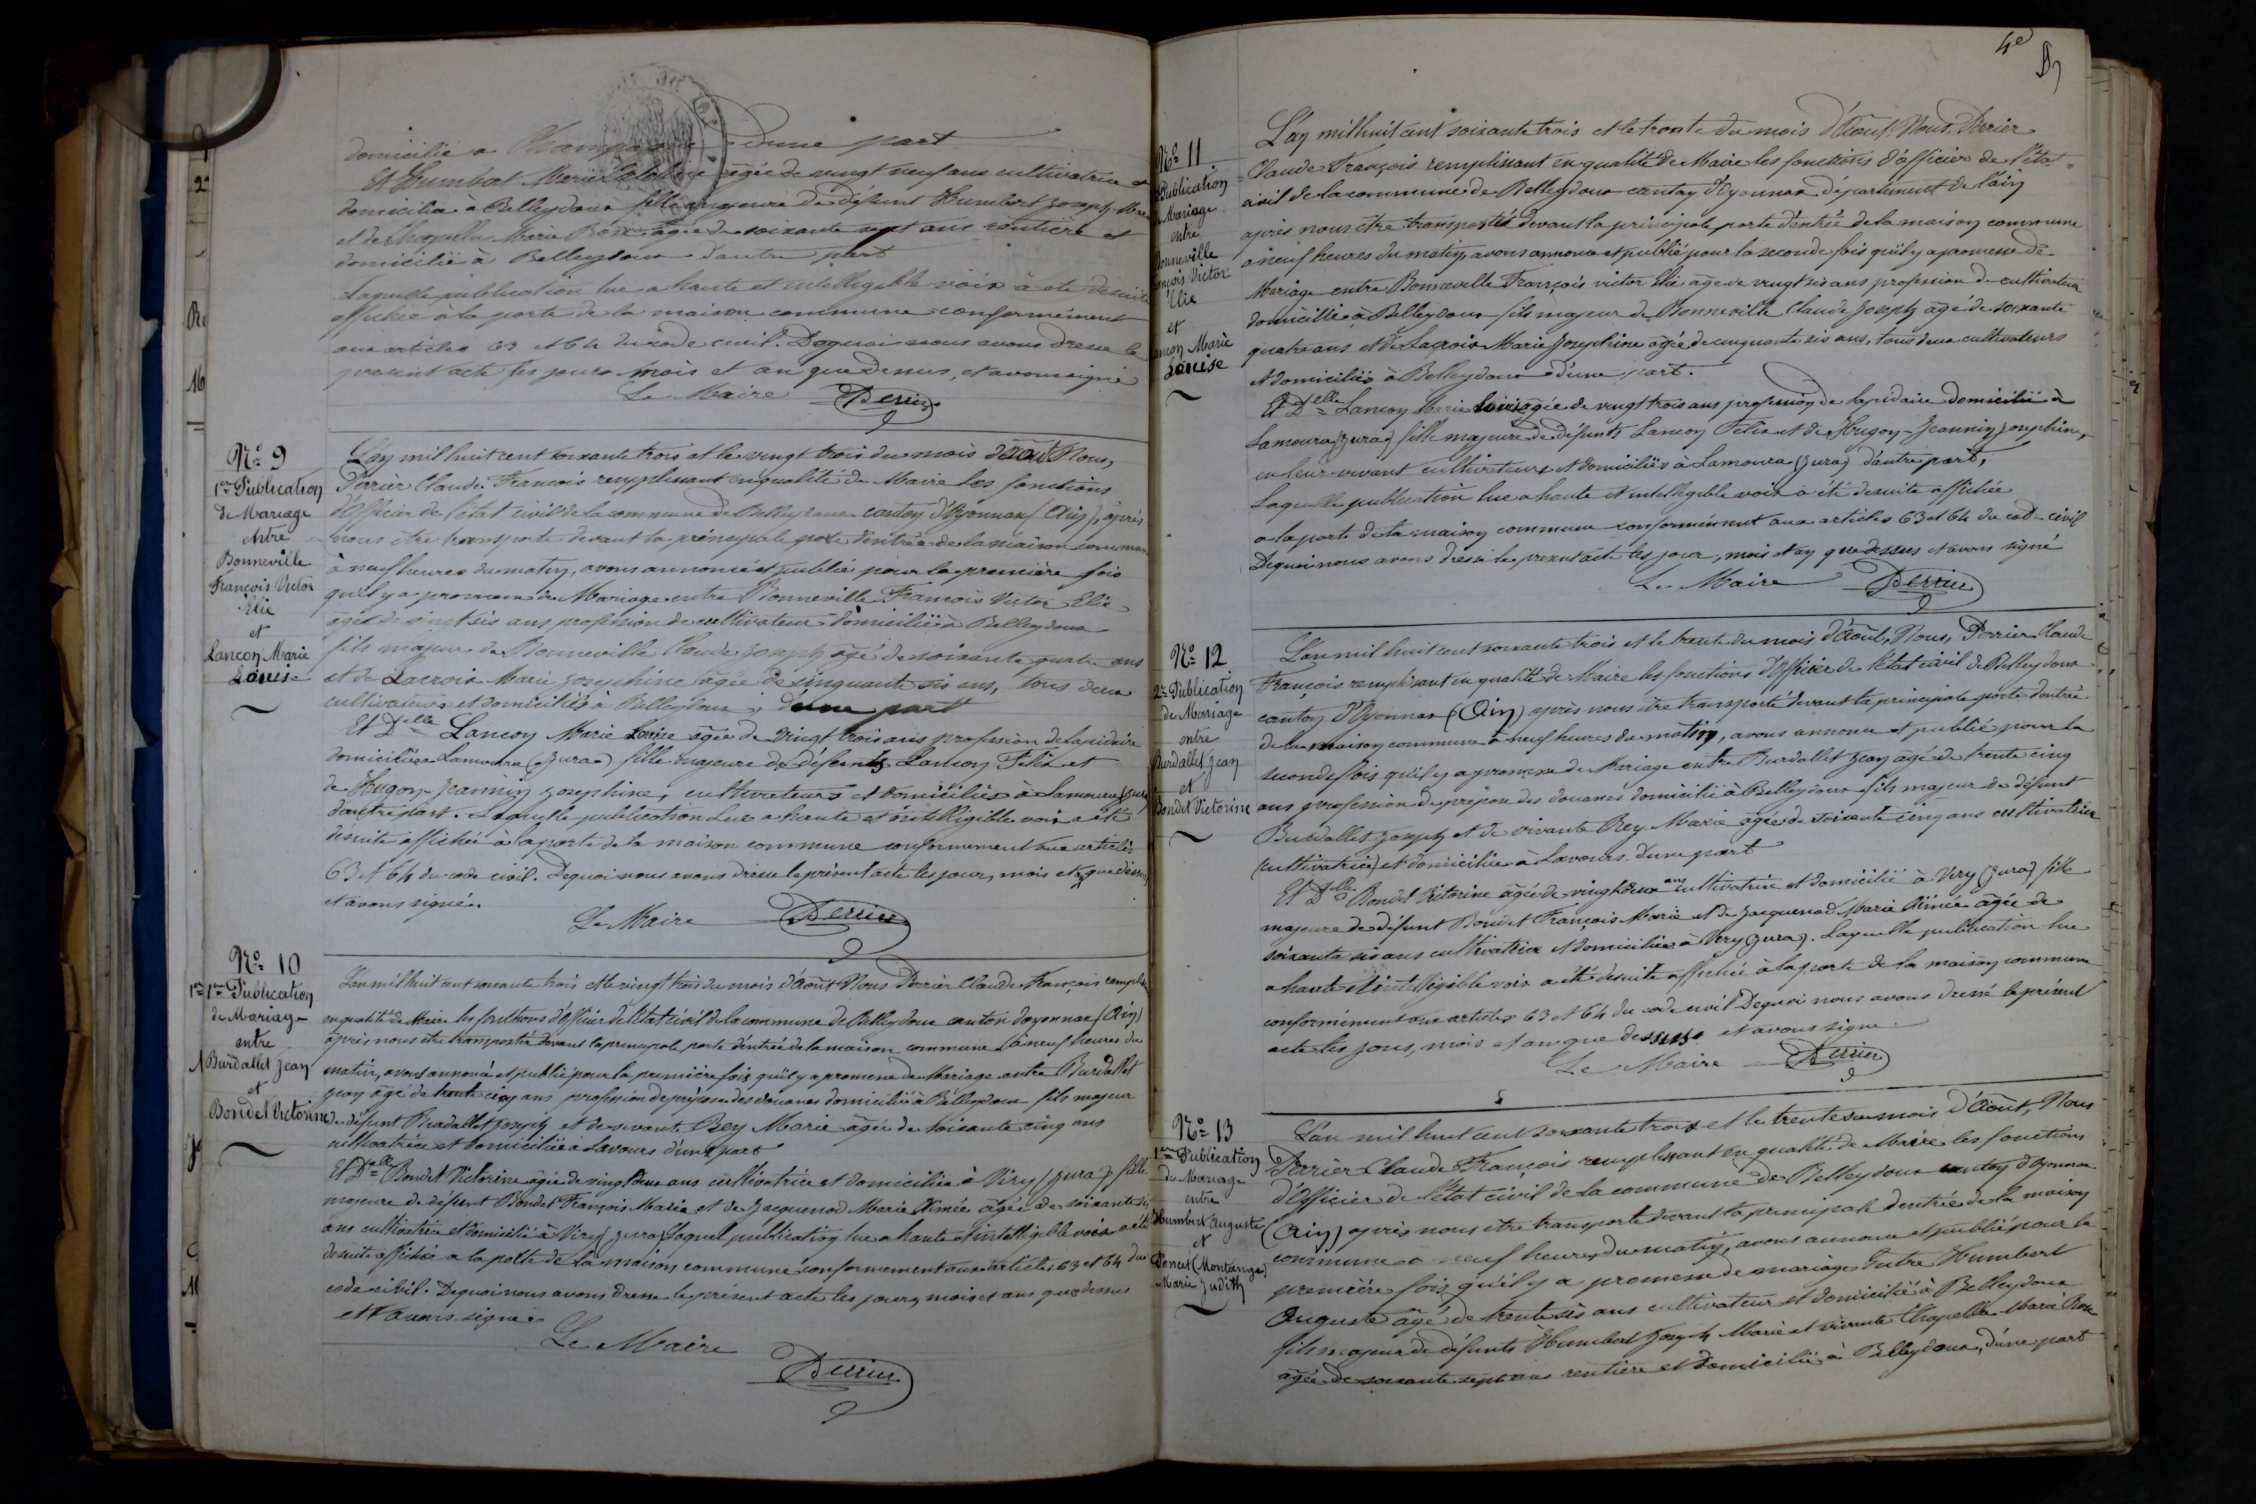 domicilié a d'une part
Et Humbert Marie âgée de vingt neuf ans cultivatrice
domicilié à Belleydoux fille majeure de défunt Humbert Joseph Marie
et de Chapelle Marie Rose âgée de soixante sept ans rentière et
domicilié à Belleydoux d'autre part
Laquelle publication lue a haute et intelligible voix à été desuite
affichée à la porte de la maison commune conformément
aux articles 63 et 64 du code civil. Dequoi nous avons dressé le
présent acte les jours mois et an que dessus, et avons signé
Le Maire Perrier
No 9
1ere Publication
de Mariage
entre
Bonneville
François Victor
Elie
et
Lançon Marie
Louise
L'an mil huit cent soixante trois et le vingt trois du mois d'août Nous,
Perrier Claude François remplissant en qualité de Maire les fonctions
d'officier de l'état civil de la commune de Belleydoux canton d'Oyonnax (Ain), après
nous être transporté devant la principale porte d'entrée de la maison commune
à neuf heures du matin, avons annoncé et publié pour la première fois
qu'il y a promesse de Mariage entre Bonneville François Victor Elie
âgé de vingt six ans profession de cultivateur domicilié à Belleydoux
fils majeur de Bonneville Claude Joseph âgé de soixante quatre ans
et de Lacroix Marie Josephine âgée de cinquante six ans, tous deux
cultivateurs et domiciliés à Belleydoux, d'une part
Et Delle Lançon Marie Louise âgée de vingt trois ans profession de lapidaire
domiciliée a Lamoura (Jura) fille majeure de défunts Lançon Felix et
de Hugon-Jeannin Josephine, cultivateurs et domiciliés à Lamoura (Jura)
d'autre part. Laquelle publication lue a haute et intelligible voix a été
desuite affichée à la porte de la maison commune conformément aux articles
63 et 64 du code civil. Dequoi nous avons dressé le présent acte les jour, mois et que dessus
et avons signé.
Le Maire Perrier
No 10
1re 1re Publication
de Mariage
entre
Burdallet Jean
et
Bondet Victorine
L'an mil huit cent soixante trois et le vingt trois du mois d'août Nous Perrier Claude François
en qualité de Maire les fonctions d'officier de l'état civil de la commune de Belleydoux canton d'oyonnax (Ain)
après nous être transporté devant la principale porte d'entrée de la maison commune à neuf heures du
matin, avons annoncé et publié pour la première fois qu'il y a promesse de Mariage entre Burdallet
Jean âgé de trente cinq ans profession de préposé des douanes domicilié à Belleydoux fils majeur
de défunt Burdallet Joseph et de vivante Rey Marie âgée de soixante cinq ans
cultivatrice et domiciliée à Lavours d'une part
Et Delle Bondet Victorine âgée de vingt deux ans cultivatrice et domiciliée à Viry (Jura) fille
majeure de défunt Bondet François Marie et de Jacquenod Marie Aimée âgée de soixante six
ans cultivatrice et domicilié à Viry (Jura) laquel publication lue a haute et intelligible voix a été
desuite affichée a la porte de la maison commune conformément aux articles 63 et 64 du
code civil. Dequoi nous avons dressé le présent acte les jours, mois et ans que dessus
et avons signé.
Le Maire
Perrier
4e
No 11
Publication
Mariage
entre
Bonneville
François Victor
Elie
et
Lançon Marie
Louise
L'an mil huit cent soixante trois et le trente du mois d'août Nous, Perrier
Claude François remplissant en qualité de Maire les fonctions d'officier de l'état
civil de la commune de Belleydoux canton d'Oyonnax département de l'ain
après nous être transporté devant la principale porte d'entrée de la maison commune
a neuf heures du matin, avons annoncé et publié pour la seconde fois qu'il y a promesse de
Mariage entre Bonneville François victor Elie âgé de vingt six ans profession de cultivateur
domicilié à Belleydoux fils majeur de Bonneville Claude Joseph âgé de soixante
quatre ans et de Lacroix Marie Josephine âgée de cinquante six ans, tous deux cultivateurs
et domiciliés à Belleydoux d'une part.
Et Delle Lançon Marie Louise âgée de vingt trois ans profession de lapidaire domicilié à
Lamoura (Jura) fille majeure de défunts Lançon Felix et de Hugon-Jeannin Josephine,
en leur vivant cultivateurs et domiciliés à Lamoura (Jura) d'autre part,
Laquelle publication lue a haute et intelligible voix a été desuite affichée
a la porte de la maison commune conformément aux articles 63 et 64 du code civil
Dequoi nous avons dressé le présent acte les jour, mois et an que dessus et avons signé
Le Maire Perrier
No 12
2e Publication
de Mariage
entre
Burdallet Jean
et
Bondet Victorine
L'an mil huit cent soixante trois et le trente du mois d'août, Nous, Perrier Claude
François remplissant en qualité de Maire les fonctions d'officier de l'état civil de Belleydoux
canton d'Oyonnax (Ain) après nous être transporté devant la principale porte d'entrée
de la maison commune à neuf heures du matin, avons annoncé et publié pour la
seconde fois qu'il y a promesse de Mariage entre Burdallet Jean âgé de trente cinq
ans profession de préposé des douanes domicilié à Belleydoux fils majeur de défunt
Burdallet Joseph et de vivante Rey Marie âgée de soixante cinq ans cultivatrice
(cultivatrice) et domiciliée à Lavours d'une part
Et Delle Bondet Victorine âgée de vingt deux ans cultivatrice et domicilié à Viry (Jura) fille
majeure de défunt Bondet François Marie et de Jacquenod Marie Aimée âgée de
soixante six ans cultivatrice et domiciliée à Viry (Jura). Laquelle publication lue
a haute et intelligible voix a été desuite affichée à la porte de la maison commune
conformément aux articles 63 et 64 du code civil Dequoi nous avons dressé le présent
acte les jours, mois et an que dessus et avons signé.
Le Maire Perrier
No 13
1ere Publication
de Mariage
entre
Humbert Auguste
et
Poncet (Montange)
Marie Judith
L'an mil huit cent soixante trois et le trente du mois d'août, Nous
Perrier Claude François remplissant en qualité de Maire les fonctions
d'officier de l'état civil de la commune de Belleydoux canton d'Oyonnax
(Ain) après nous être transporté devant la principale d'entrée de la maison
commune a neuf heures du matin, avons annoncé et publié pour la
première fois qu'il y a promesse de mariage Entre Humbert
Auguste âgé de trente six ans cultivateur et domicilié à Belleydoux
fils majeur de défunts Humbert Joseph Marie et vivante Chapelle Marie Rose
âgée de soixante sept ans rentière et domicilié à Belleydoux, d'une part